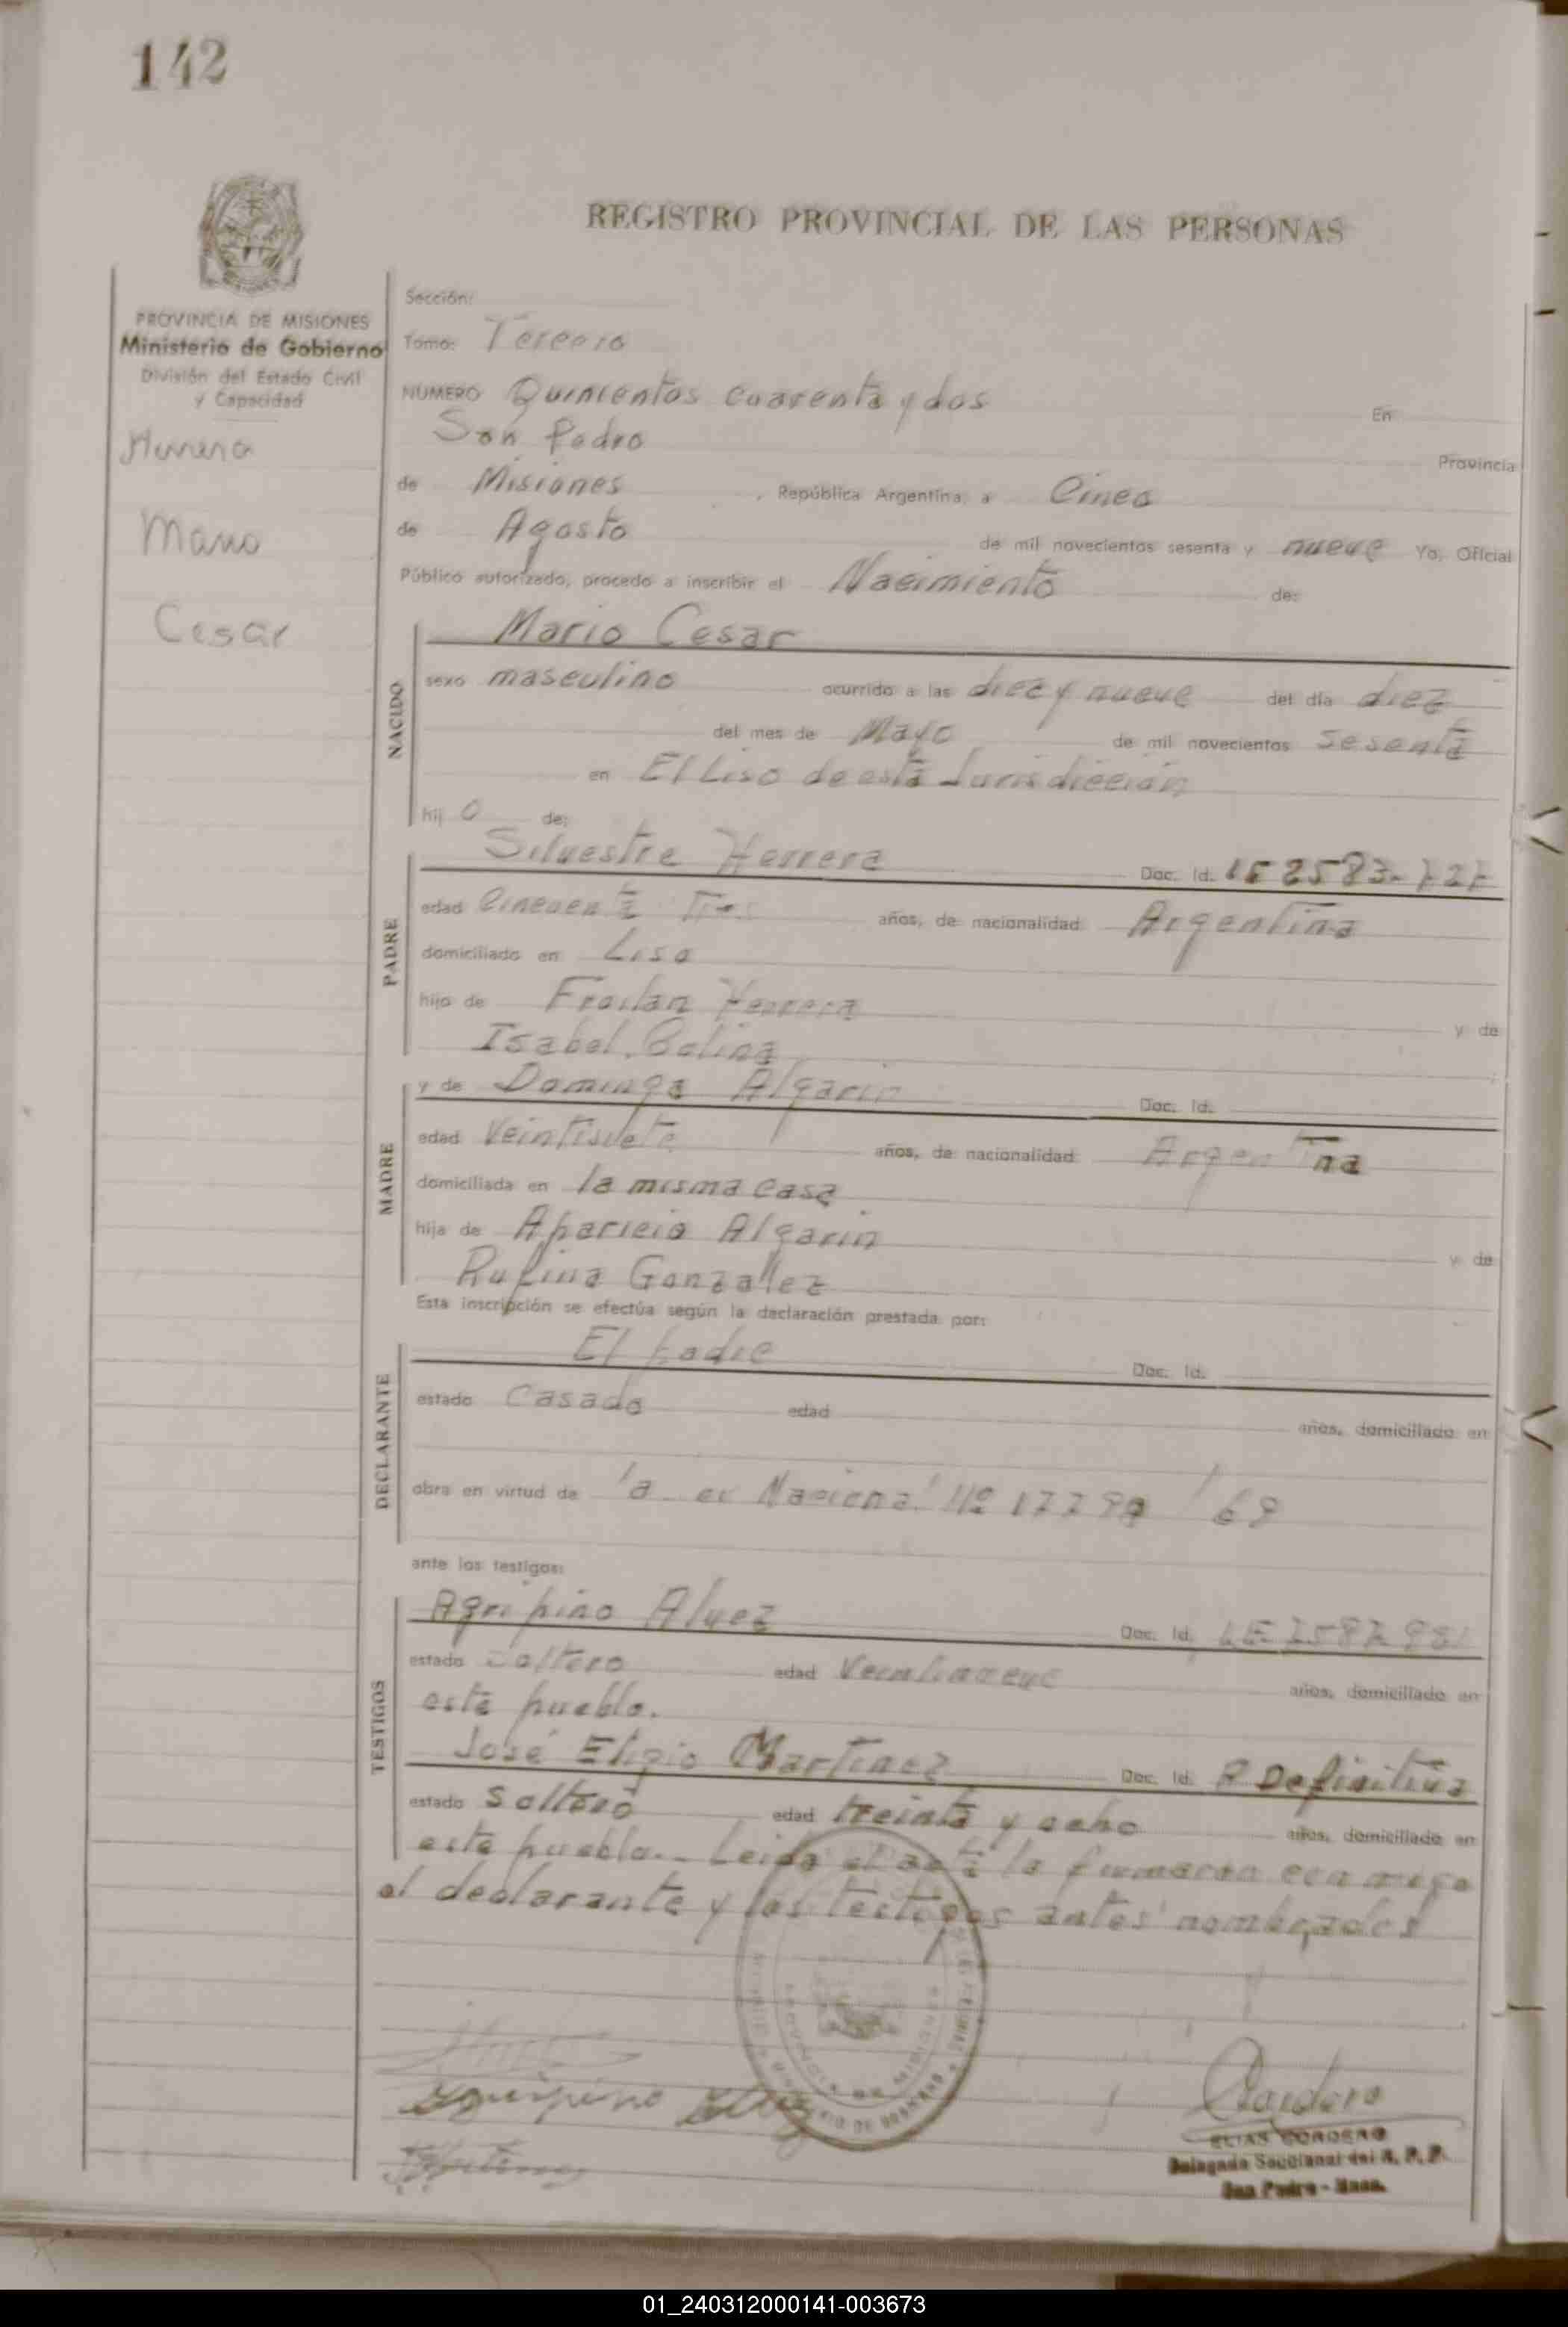 142
REGISTRO PROVINCIAL DE LAS PERSONAS
PROVINCIA DE MISIONES
Ministerio de Gobierno
División del Estado Civil
y Capacidad
Herrera
Mario
Cesar
Sección:
Tomo: Tercero
NUMERO Quinientos Cuarenta y dos En
San Pedro Provincia
de Misiones , República Argentina, a Cinco
de Agosto de mil novecientos sesenta y nueve Yo, Oficial
Público autorizado, procedo a inscribir el Nacimiento de:
NACIDO
Mario Cesar
sexo masculino ocurrido a las diez y nueve del día diez
del mes de Mayo de mil novecientos sesenta
en El Liso de esta Jurisdicción
hij o de:
PADRE
Silvestre Herrera Doc. Id.
edad Cincuenta Tres años, de nacionalidad Argentina
domiciliado en Liso
hijo de Froilan Herrera y de
Isabel
MADRE
y de Dominga Algarin Doc. Id.
edad Veintisiete años, de nacionalidad Argentina
domiciliada en la misma casa
hija de Aparicio Algarin y de
Rufina Gonzalez
Esta inscripción se efectúa según la declaración prestada por:
DECLARANTE
El padre Doc. Id.
estado Casado edad años, domiciliado en
obra en virtud de la Nacional Nº / 69
ante los testigos:
TESTIGOS
Agripino Alvez Doc. Id. LE
estado Soltero edad Veintinueve años, domiciliado en
este pueblo.
José Eligio Martinez Doc. Id. P Definitiva
estado Soltero edad treinta y ocho años, domiciliado en
este pueblo.- Leida el acta la firmaron conmigo
el declarante y los testigos antes nombrados
PROVINCIA DE MISIONES
MINISTERIO DE GOBIERNO
Agripino Alvez
Cordero
ELIAS CORDERO
Delegado Seccional del R. P. P.
San Pedro - Mnes.
01_240312000141-003673